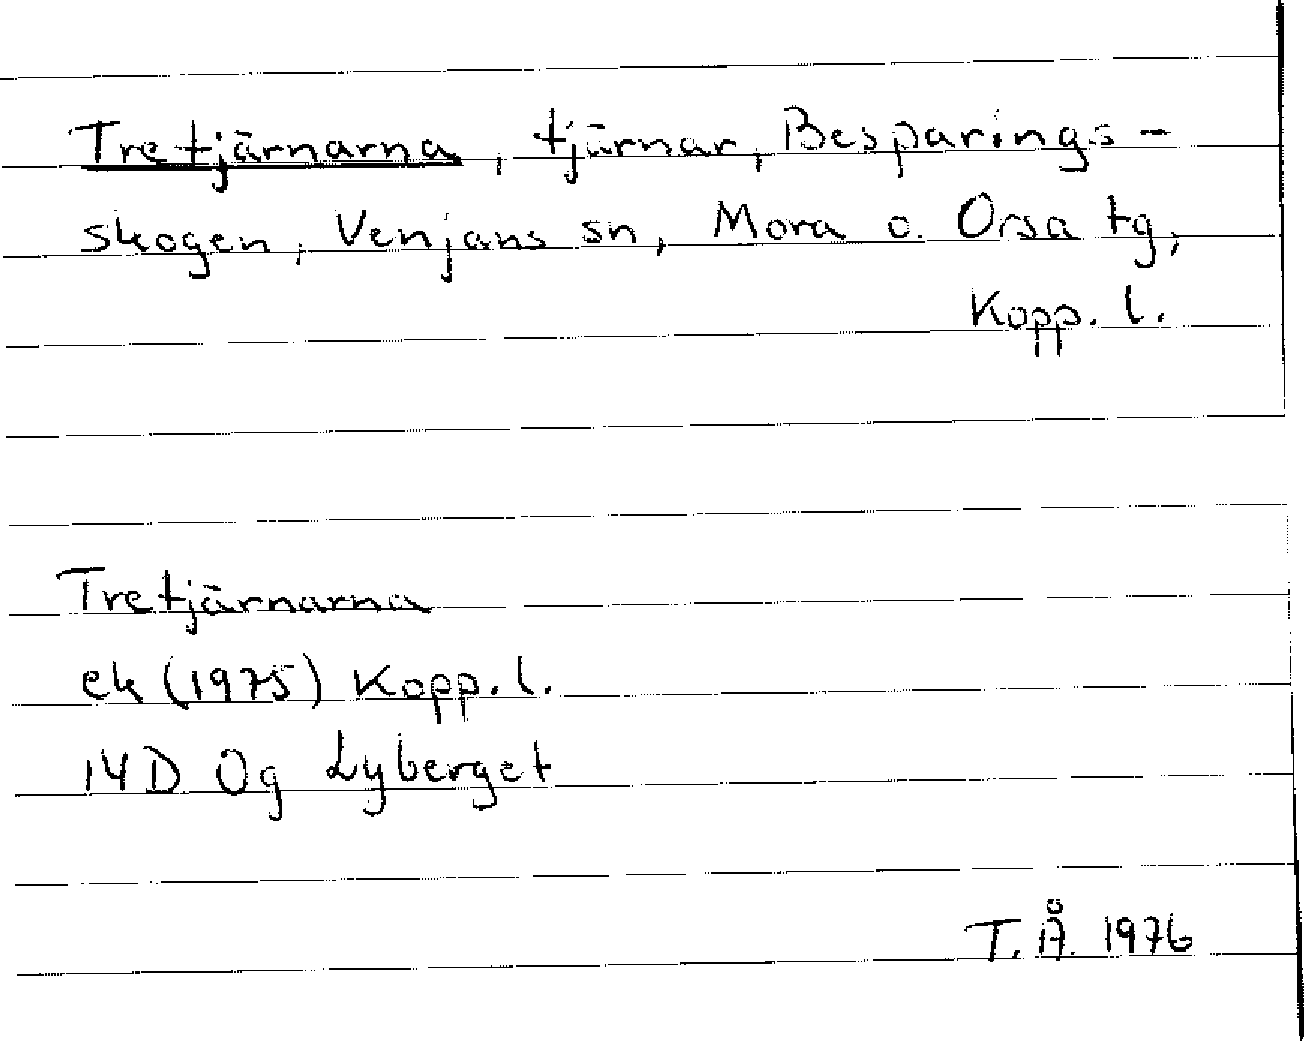 Tretjärnarna, tjärnar, Besparings-
skogen, Venjans sn, Mora o. Orsa tg,
Kopp. l.
Tretjärnarna
ek (1975) Kopp. l.
14D 0g Lyberget
T. Å. 1976